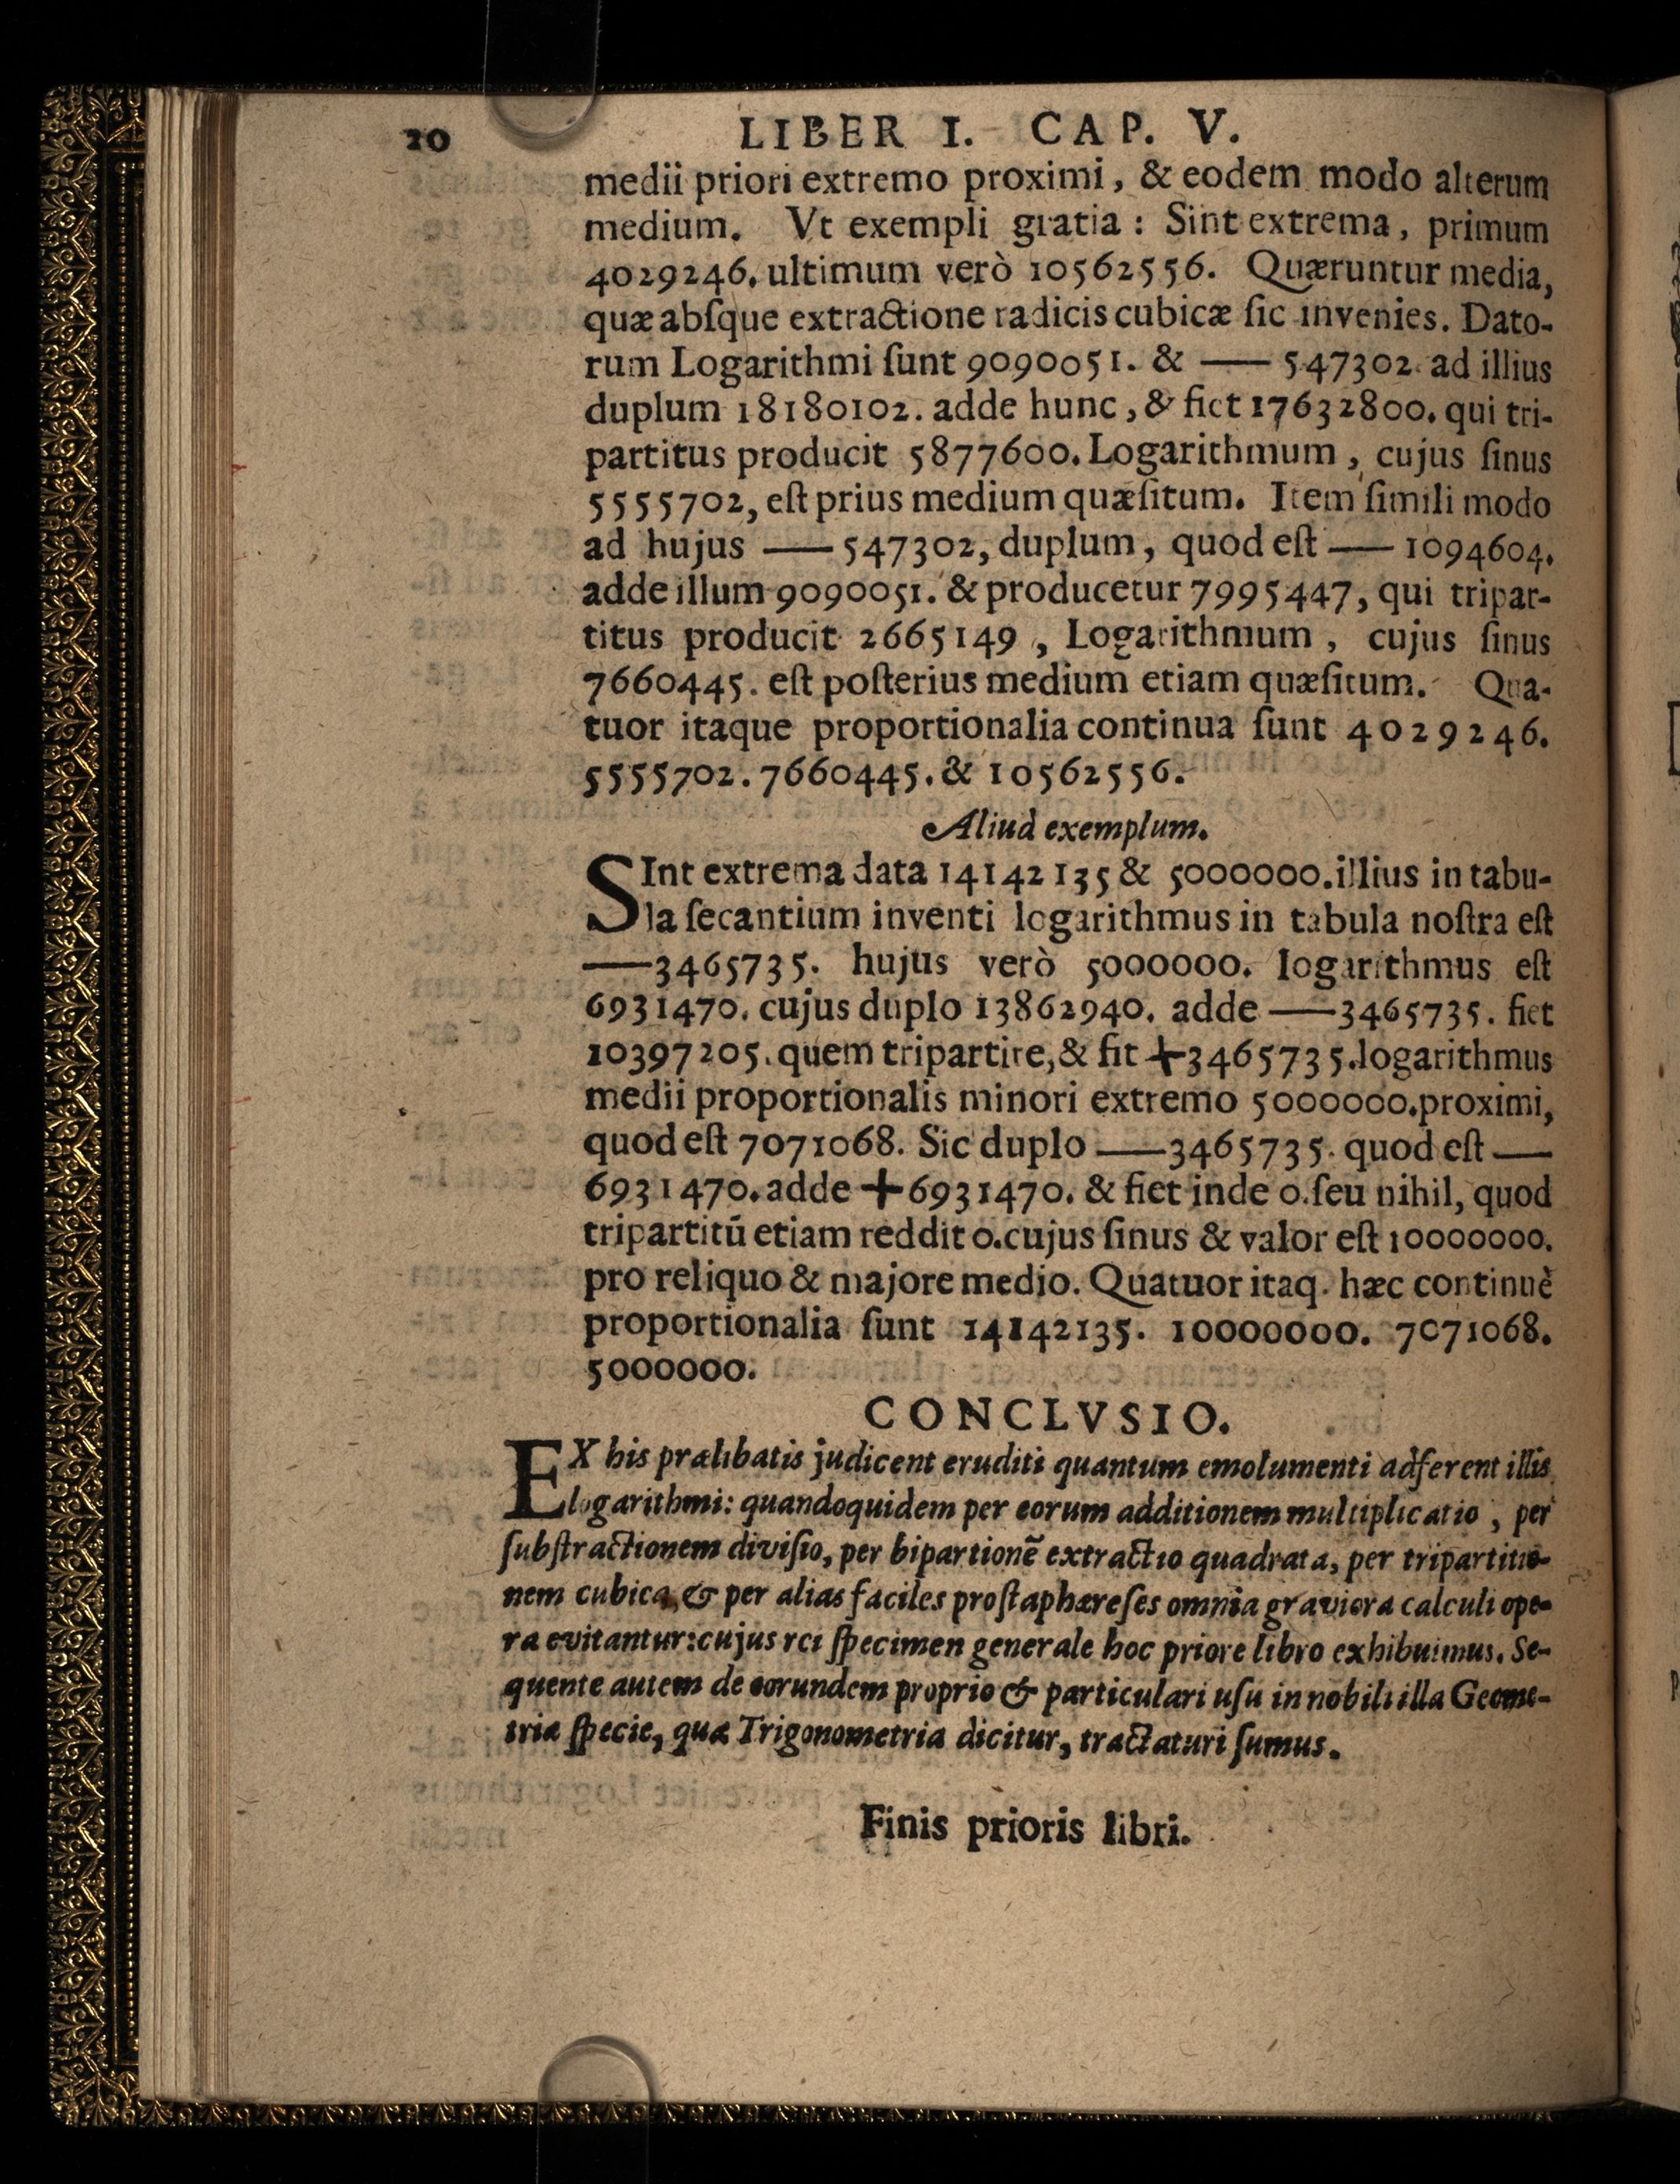 20 LIBER I. CAP. V.
medii priori extremo proximi, & eodem modo alterum
medium. Vt exempli gratia : Sint extrema, primum
4029246. ultimum verò 10562556. Quæruntur media,
quæ abſque extractione radicis cubicæ ſic invenies. Dato-
rum Logarithmi ſunt 9090051. & — 547302. ad illius
duplum 18180102. adde hunc, & fiet 17632800. qui tri-
partitus producit 5877600. Logarithmum, cujus ſinus
5555702, eſt prius medium quæſitum. Item ſimili modo
ad hujus — 547302, duplum, quod eſt — 1094604.
adde illum 9090051. & producetur 7995447, qui tripar-
titus producit 2665149, Logarithmum, cujus ſinus
7660445. eſt poſterius medium etiam quæſitum. Qua-
tuor itaque proportionalia continua ſunt 4029246.
5555702. 7660445. & 10562556.
Aliud exemplum.
SInt extrema data 14142135 & 5000000. illius in tabu-
la ſecantium inventi logarithmus in tabula noſtra eſt
—3465735. hujus verò 5000000. logarithmus eſt
6931470. cujus duplo 13862940. adde —3465735. fiet
10397205. quem tripartire, & fit +3465735. logarithmus
medii proportionalis minori extremo 5000000. proximi,
quod eſt 7071068. Sic duplo —3465735. quod eſt —
6931470. adde +6931470. & fiet inde 0. ſeu nihil, quod
tripartitū etiam reddit 0. cujus ſinus & valor eſt 10000000.
pro reliquo & majore medio. Quatuor itaq. hæc continuè
proportionalia ſunt 14142135. 10000000. 7071068.
5000000.
CONCLVSIO.
EX his prælibatis judicent eruditi quantum emolumenti adferent illis
logarithmi: quandoquidem per eorum additionem multiplicatio, per
ſubſtractionem diviſio, per bipartionē extractio quadrata, per tripartitio-
nem cubica, & per alias faciles proſtaphæreſes omnia graviora calculi ope-
ra evitantur: cujus rei ſpecimen generale hoc priore libro exhibuimus. Se-
quente autem de eorundem proprio & particulari uſu in nobili illa Geome-
triæ ſpecie, quæ Trigonometria dicitur, tractaturi ſumus.
Finis prioris libri.